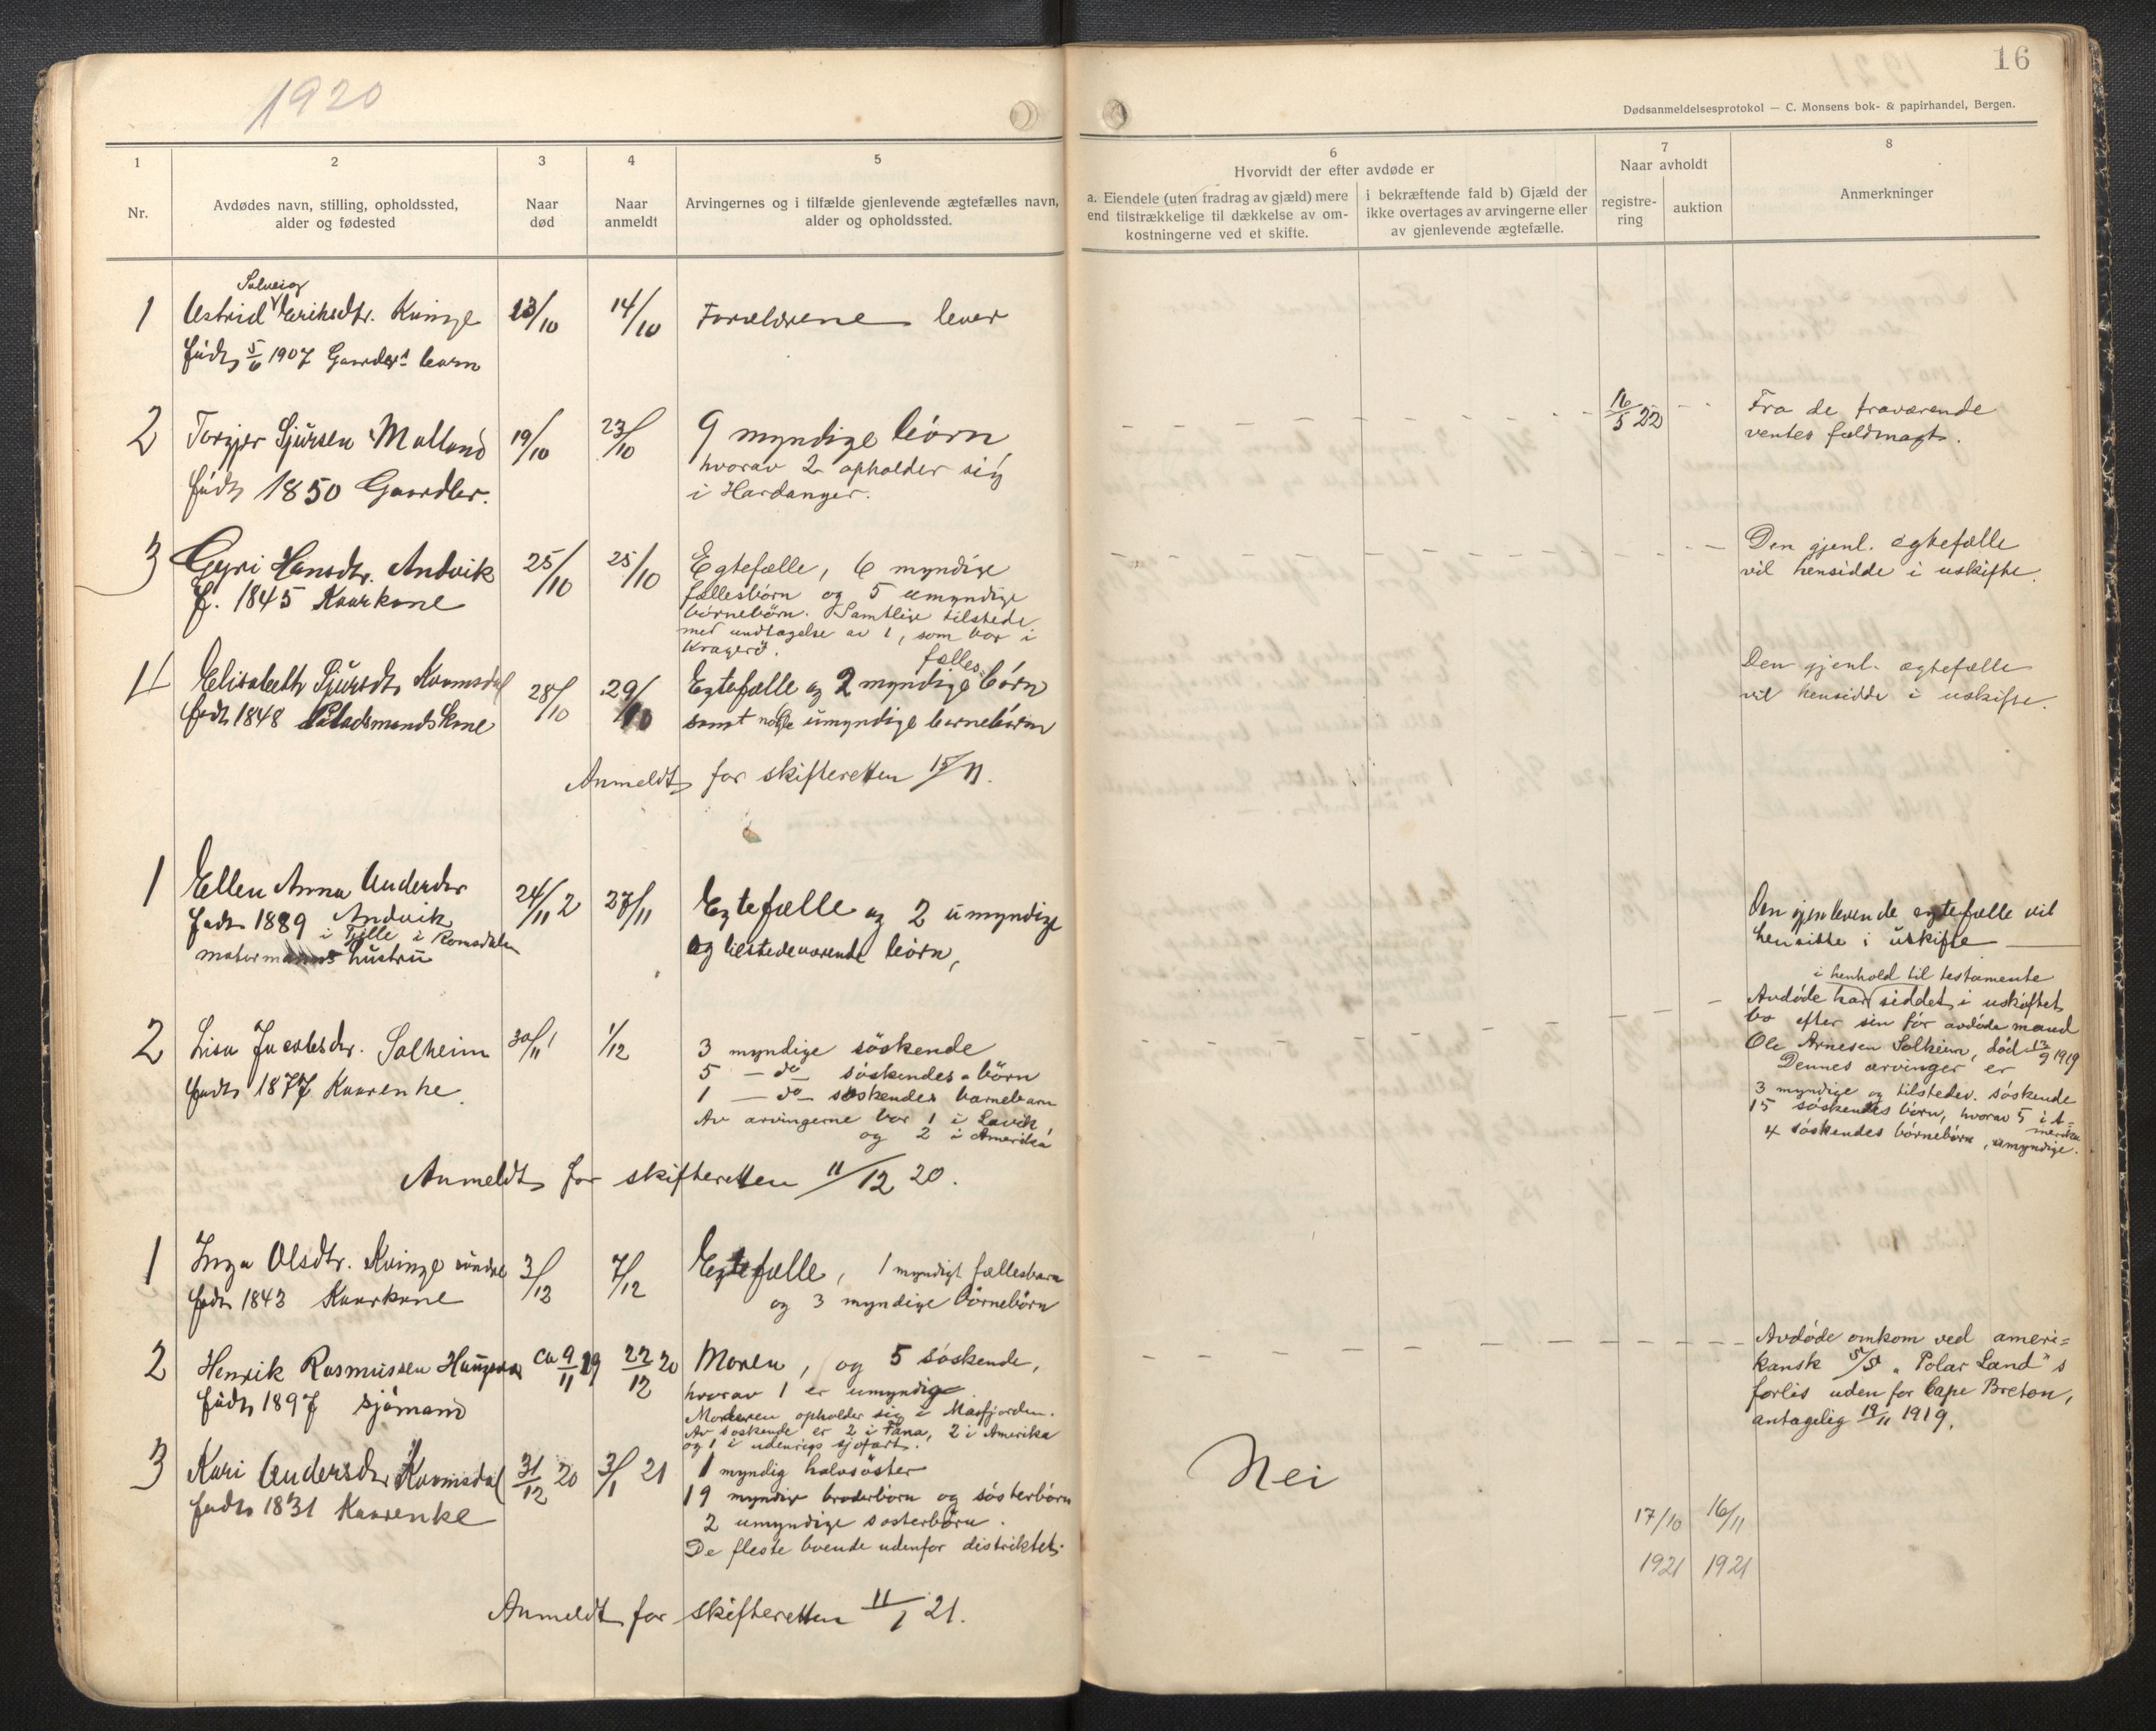 1920
16
Dødsanmeldelsesprotokol — C. Monsens bok- & papirhandel, Bergen.
1
2
3
4
5
6
7
8
Nr.
Avdødes navn, stilling, opholdssted,
alder og fødested
Naar
død
Naar
anmeldt
Arvingernes og i tilfælde gjenlevende ægtefælles navn,
alder og opholdssted.
Hvorvidt der efter avdøde er
a. Eiendele (uten fradrag av gjæld) mere
end tilstrækkelige til dækkelse av om-
kostningerne ved et skifte.
i bekræftende fald b) Gjæld der
ikke overtages av arvingerne eller
av gjenlevende ægtefælle.
Naar avholdt
registre-
ring
auktion
Anmerkninger
Solveig
1 Astrid Eriksdtr. Kvinge 13/10 14/10 Forældrene lever
født 5/6 1907 Gaardbr. barn
2 Torgjer Sjursen Matland 19/10 23/10 9 myndige børn 16/5 22 Fra de fraværende
hvorav 2 opholder sig ventes fuldmagt.
født 1850 Gaardbr. i Hardanger.
3 Gyri Hansdtr. Andvik 25/10 25/10 Egtefælle, 6 myndige Den gjenl. egtefælle
f. 1845 Kaarkone fællesbørn og 5 umyndige vil hensidde i uskifte.
børnebørn. Samtlige tilstede
med undtagelse av 1, som bor i
Kragerö.
fælles
4 Elisabeth Sjursdtr Kvamsdal 28/10 29/10 Egtefælle og 2 myndige børn Den gjenl. egtefælle
født 1848 Pladsmandskone samt nogle umyndige barnebørn vil hensidde i uskifte.
Anmeldt for skifteretten 15/11.
1 Ellen Anna Andersdtr 24/11 2 27/11 Egtefælle og 2 umyndige Den gjenlevende egtefælle vil
Andvik og tilstedeværende børn, hensitte i uskifte
født 1889 i Romsdalen
hustru
i henhold til testamente
2 Lisa Jacobsdtr. Solheim 30/11 1 1/12 3 myndige söskende Avdöde har siddet i uskiftet
født 1877 Kaarenke. 5 — do — söskendes börn bo efter sin för avdöde mand
1 — do — söskendes barnebarn Ole Arnesen Solheim, död 13/9 1919
Av arvingerne bor 1 i Lavik, Dennes arvinger er
og 2 i Amerika 3 myndige og tilstedev. söskende
15 söskendes börn, hvorav 5 i A=
merika
4 söskendes börnebörn, umyndige.
Anmeldt for skifteretten 11/12 20.
1 Inga Olsdtr. Kvinge söndre 3/12 7/12 Egtefælle, 1 myndigt fællesbarn
født 1843 Kaarkone og 3 myndige börnebörn
2 Henrik Rasmussen ca 9/11 19 22/12 20 Moren, og 5 söskende, Avdöde omkom ved ameri=
født 1897 sjömand hvorav 1 er umyndig kansk S/S "Polar Land"s
Moderen opholder sig i Masfjorden. forlis uden for Cape Breton,
Av söskende er 2 i Fana, 2 i Amerika antagelig 19/11 1919.
og 1 i udenrigs sjöfart.
3 Kari Andersdtr Kvamsdal 31/12 20 3/1 21 1 myndig halvsöster Nei 17/10 1921 16/11 1921
født 1831 Kaarenke 19 myndige broderbörn og sösterbörn
2 umyndige sösterbörn.
De fleste boende udenfor distriktet.
Anmeldt for skifteretten 11/1 21.